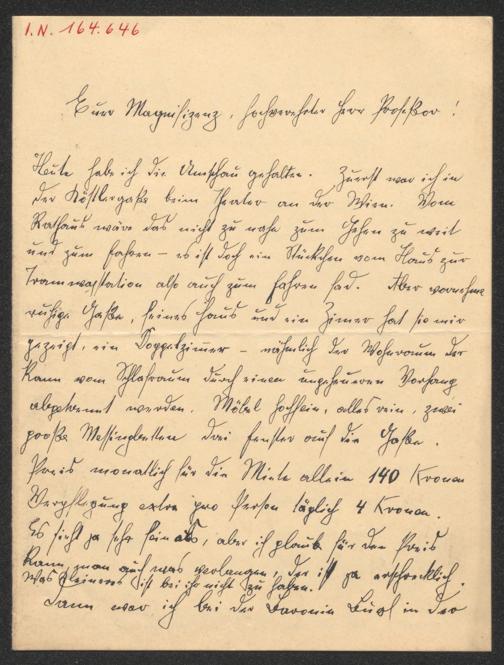 I.N. 164.646
Eure Magnifizenz, hochverehrter Herr Professor!
Heute habe ich die Umschau gehalten. Zuerst war ich in
der Köstlergaße beim Theater an der Wien. Vom
Rathaus wäre das nicht zu nahe zum Gehen zu weit
und zum fahren – es ist doch ein Stückchen vom Haus zur
Tramwaystation also auch zum fahren fad. Aber vornehme
ruhige Gaße, feines Haus und ein Zimer hat sie mir
gezeigt, ein Doppelzimer – nähmlich der Wohnraum der
kann vom Schlafraum durch einen ungeheueren Vorhang
abgetrennt werden. Möbel hochfein, alles rein, zwei
große Messingbetten drei Fenster auf die Gaße.
Preis monatlich für die Miete allein 140 Kronen
Verpflegung extra pro Person täglich 4 Kronen.
Es sieht ja sehr fein aus, aber ich glaube für den Preis
kann man auch was verlangen, der ist ja erschrecklich.
Was kleineres ist bei ihr nicht zu haben.
Dann war ich bei der Baronin in der